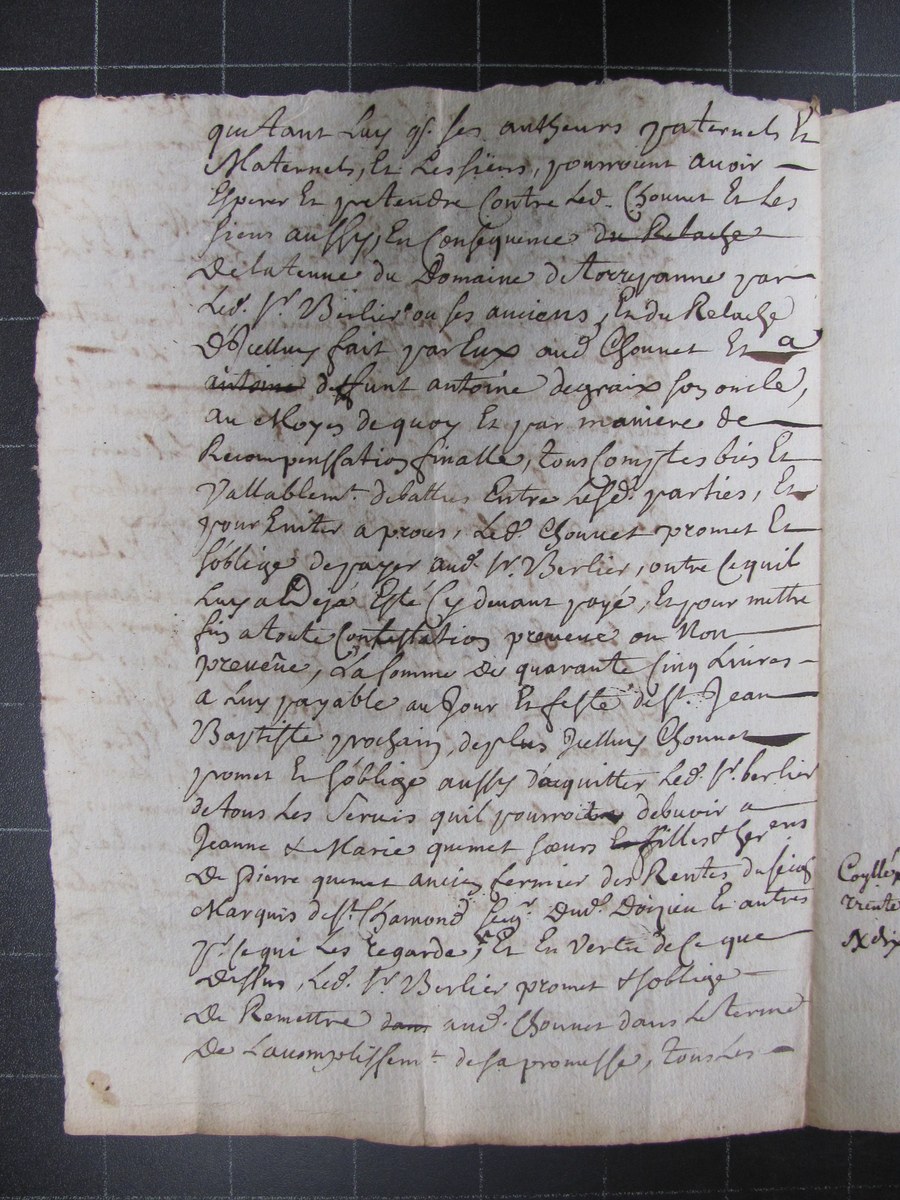 quittant luy q. ses autheurs paternels Et
Maternels, Et les siens, pourroient avoir
Esperer Et pretendre Contre led. Chounet Et les
siens aussy, En Consequence du Relache
De la tenue du Domaine par
Led. Sr. Berlier ou ses anciens, Et du Relache
D'Icelluy fait par Eux aud Chounet Et a
antoine deffunt antoine degraix son oncle,
au Moyen de quoy Et par maniere de
Recompenssation finalle, tous Comptes bien Et
Vallablemt. debattus Entre lesd. parties, Et
pour Eviter a proces, Led. Chounet promet Et
s'oblige de payer aud. Sr. Berlier, outre Ce quil
Luy a Deja Esté Cy devant payé, Et pour mettre
fin a toute Contestation preveue ou Non
preveüe, La somme de quarante Cinq Livres
a Luy payable au Jour Et feste de St. Jean
Baptiste prochain, de plus Icelluy Chounet
promet Et s'oblige aussy d'acquitter Led. Sr. berlier
de tous Les Servis quil pourroit debvoir a
Jeanne & Marie quemet sœurs Et filles & her ens
De pierre quemet ancien fermier des Rentes du seigr
Marquis de St. Chamond Seigr. Dud. Doizieu Et autres
pr. Ce qui Les regarde, Et En vertu de Ce que
Dessus, Led. Sr. Berlier promet & s'oblige
De Remettre dans aud. Chounet dans Le terme
De L'acomplissemt. de sa promesse, tous Les
trente